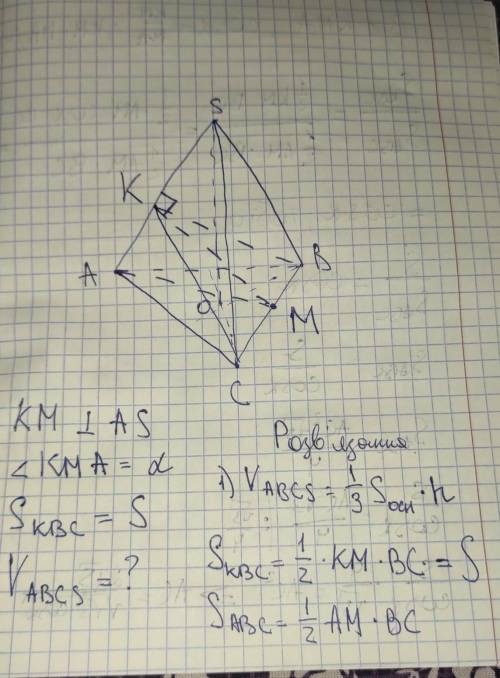 S
K
A
B
O
M
C
KM ⊥ AS
∠KMA = α
S_KBC = S
V_ABCS = ?
Розв'язання
1) V_ABCS = 1/3 S_осн · h
S_KBC = 1/2 · KM · BC · = S
S_ABC = 1/2 AM · BC